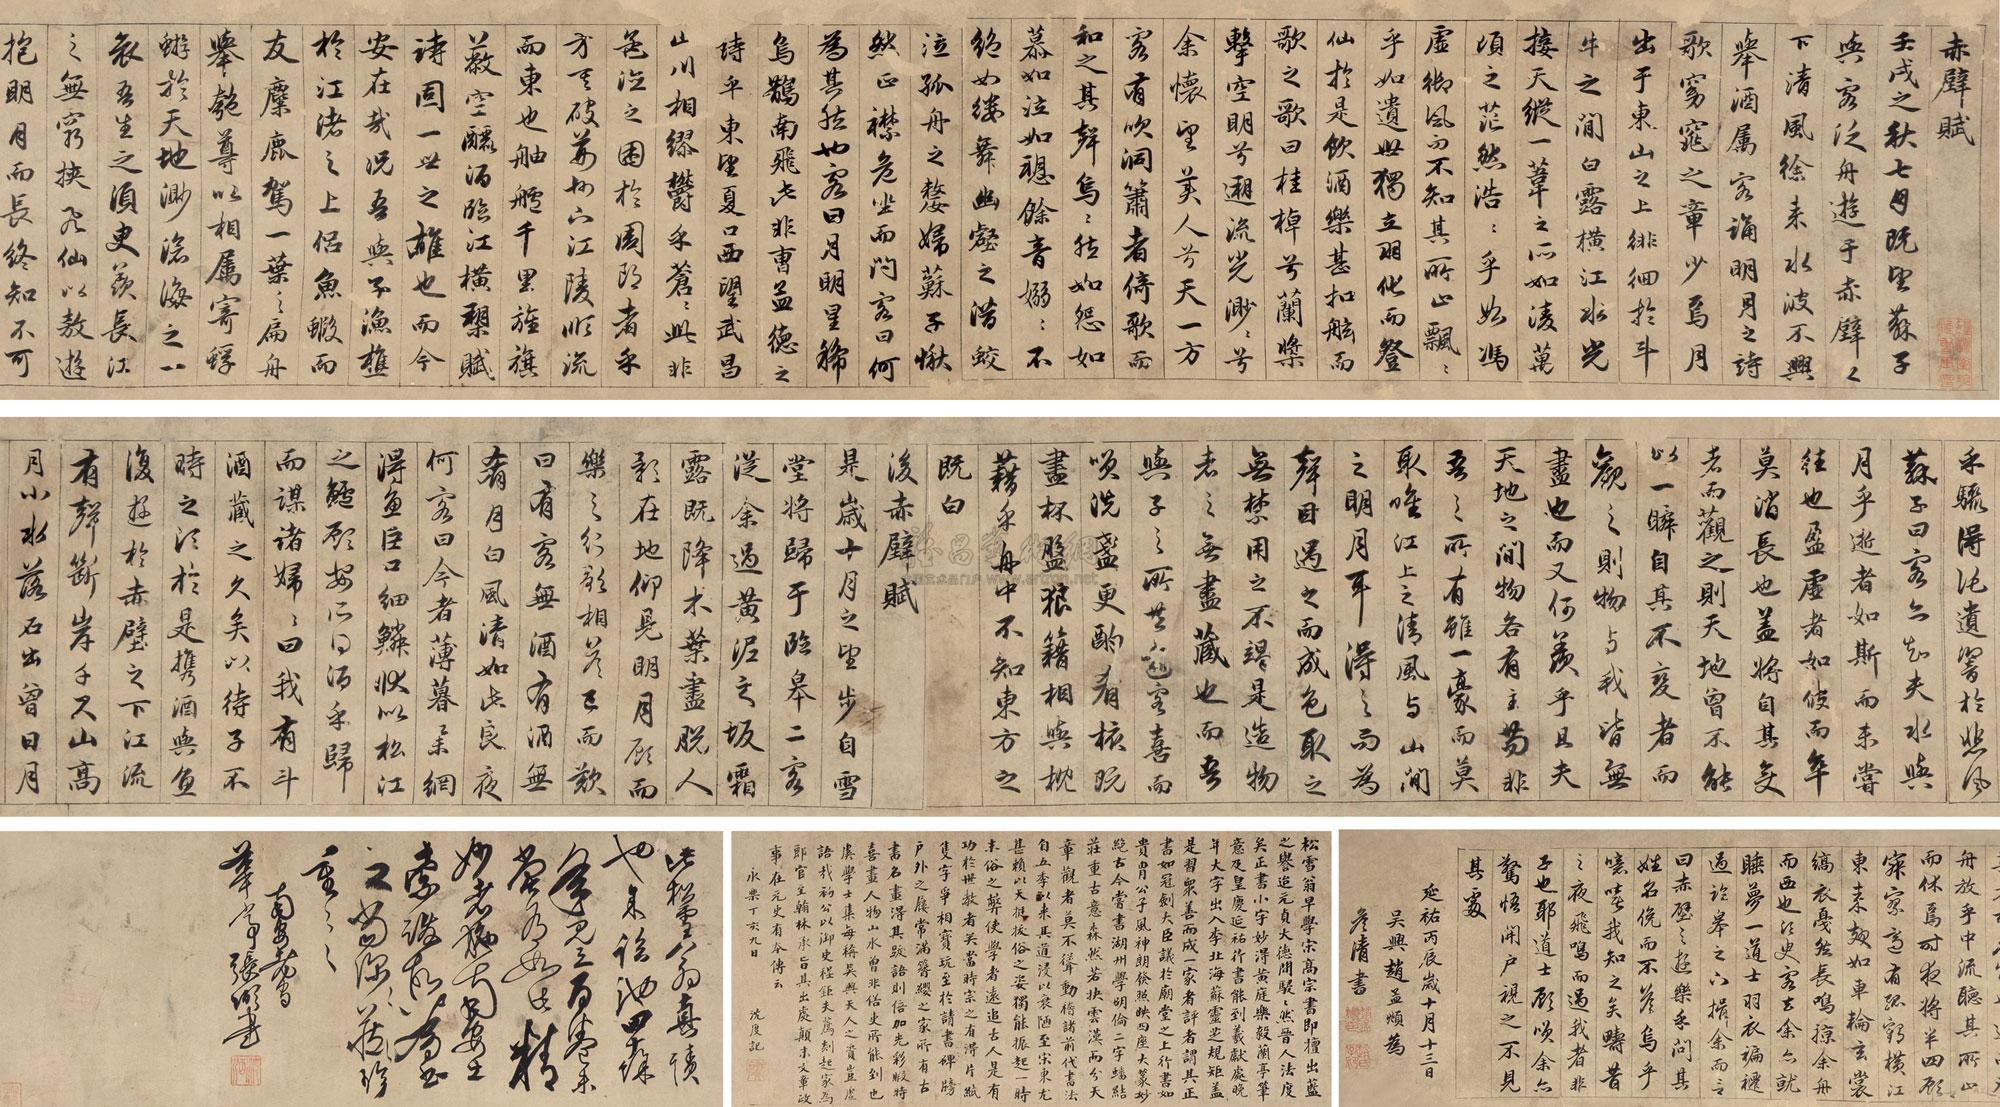 赤壁賦
壬戌之秋七月既望蘇子
與客泛舟遊于赤壁之
下清風徐来水波不興
舉酒属客誦明月之詩
歌窈窕之章少焉月
出于東山之上徘徊於斗
牛之間白露横江水光
接天縱一葦之所如凌萬
頃之茫然浩〻乎如馮
虚御風而不知其所止飄〻
乎如遺世獨立羽化而登
仙於是飲酒樂甚扣舷而
歌之歌曰桂棹兮蘭槳
擊空明兮遡流光渺〻兮
余懷望美人兮天一方
客有吹洞簫者倚歌而
和之其聲烏〻然如怨如
慕如泣如聴餘音嫋〻不
絶如縷舞幽壑之潛蛟
泣孤舟之嫠婦蘇子愀
然正襟危坐而問客曰何
為其然也客曰月明星稀
烏鵲南飛此非曹孟德之
詩乎東望夏口西望武昌
山川相繆鬱乎蒼〻此非
孟德之困於周郎者乎
方其破荊州下江陵順流
而東也舳艫千里旌旗
蔽空釃酒臨江横槊賦
詩固一世之雄也而今
安在哉況吾與子漁樵
於江渚之上侣魚鰕而
友麋鹿駕一葉之扁舟
舉匏尊以相属寄蜉
蝣於天地渺滄海之一
哀吾生之須臾羨長江
之無窮挾飛仙以遨遊
抱明月而長終知不可
乎驟得託遺響於悲風
蘇子曰客亦知夫水與
月乎逝者如斯而未嘗
往也盈虚者如彼而卒
莫消長也盖將自其变
者而觀之則天地曾不能
以一瞬自其不變者而
觀之則物与我皆無
盡也而又何羨乎且夫
天地之間物各有主苟非
吾之所有雖一豪而莫
取唯江上之清風与山間
之明月耳得之而為
聲目遇之而成色取之
無禁用之不竭是造物
者之無盡藏也而吾
與子之所共適客喜而
笑洗盞更酌肴核既
盡杯盤狼籍相與枕
藉乎舟中不知東方之
既白
後赤壁賦
是歳十月之望步自雪
堂將歸于臨皋二客
從余過黄泥之坂霜
露既降木葉盡脱人
影在地仰見明月顧而
樂之行歌相答已而歎
曰有客無酒有酒無
肴月白風清如此良夜
何客曰今者薄暮舉網
得魚巨口細鱗状似松江
之鱸顧安所得酒乎歸
而謀諸婦〻曰我有斗
酒藏之久矣以待子不
時之須於是携酒與魚
復遊於赤壁之下江流
有聲斷岸千尺山高
月小水落石出曾日月
舟放乎中流聽其所止
而休焉時夜将半四顧
寂寥適有孤鶴横江
東来翅如車輪玄裳
縞衣戛然長鳴掠余舟
而西也須臾客去余亦就
睡夢一道士羽衣褊褼
過臨皋之下揖余而言
曰赤壁之遊樂乎問其
姓名俛而不答烏乎
噫嘻我知之矣疇昔
之夜飛鳴而過我者非
子也耶道士顧笑余亦
驚悟開户視之不見
其處
延祐丙辰歲十月十三日
吳興趙孟頫為
彦清書
松雪翁早學宗高宗書即擅出藍
之譽迨元貞大德間駸〻然晉人法度
矣正書小字妙得黄庭樂毅蘭亭筆
意及皇慶延祐行書能到羲獻處晚
年大字出入李北海蘇靈芝規矩盖
是習衆善而成一家者評者謂其正
書如冠劍大臣議於廟堂之上行書如
貴胄公子風神朗發照映四座大篆妙
絶古今嘗書湖州學明倫二字
莊重古意森然若抉雲漢而分天
章觀者莫不聳動稽諸前代書法
自五季以来其道浸以衰陋至宗東尤
甚賴以天挺抜俗之姿獨能振起一時
末俗之弊使學者遠追古人是有
功於世教者矣當時宗之有得片紙
隻字爭相寳玩至於請書碑牓
户外之屨常滿簪纓之家所有古
書名畫得其跋語則倍加光彩暇時
喜畫人物山水曾非俗史所能到也
虞學士集每稱吳興天人之資豈虚
語哉初公以御史程鉅夫薦刻起家為
郎官主翰林承旨其出處顛末文章政
事在元史有本傳云
永樂丁亥九日
沈度記
此松雪翁真蹟
之當深藏珍
重〻〻
華亭張弼書